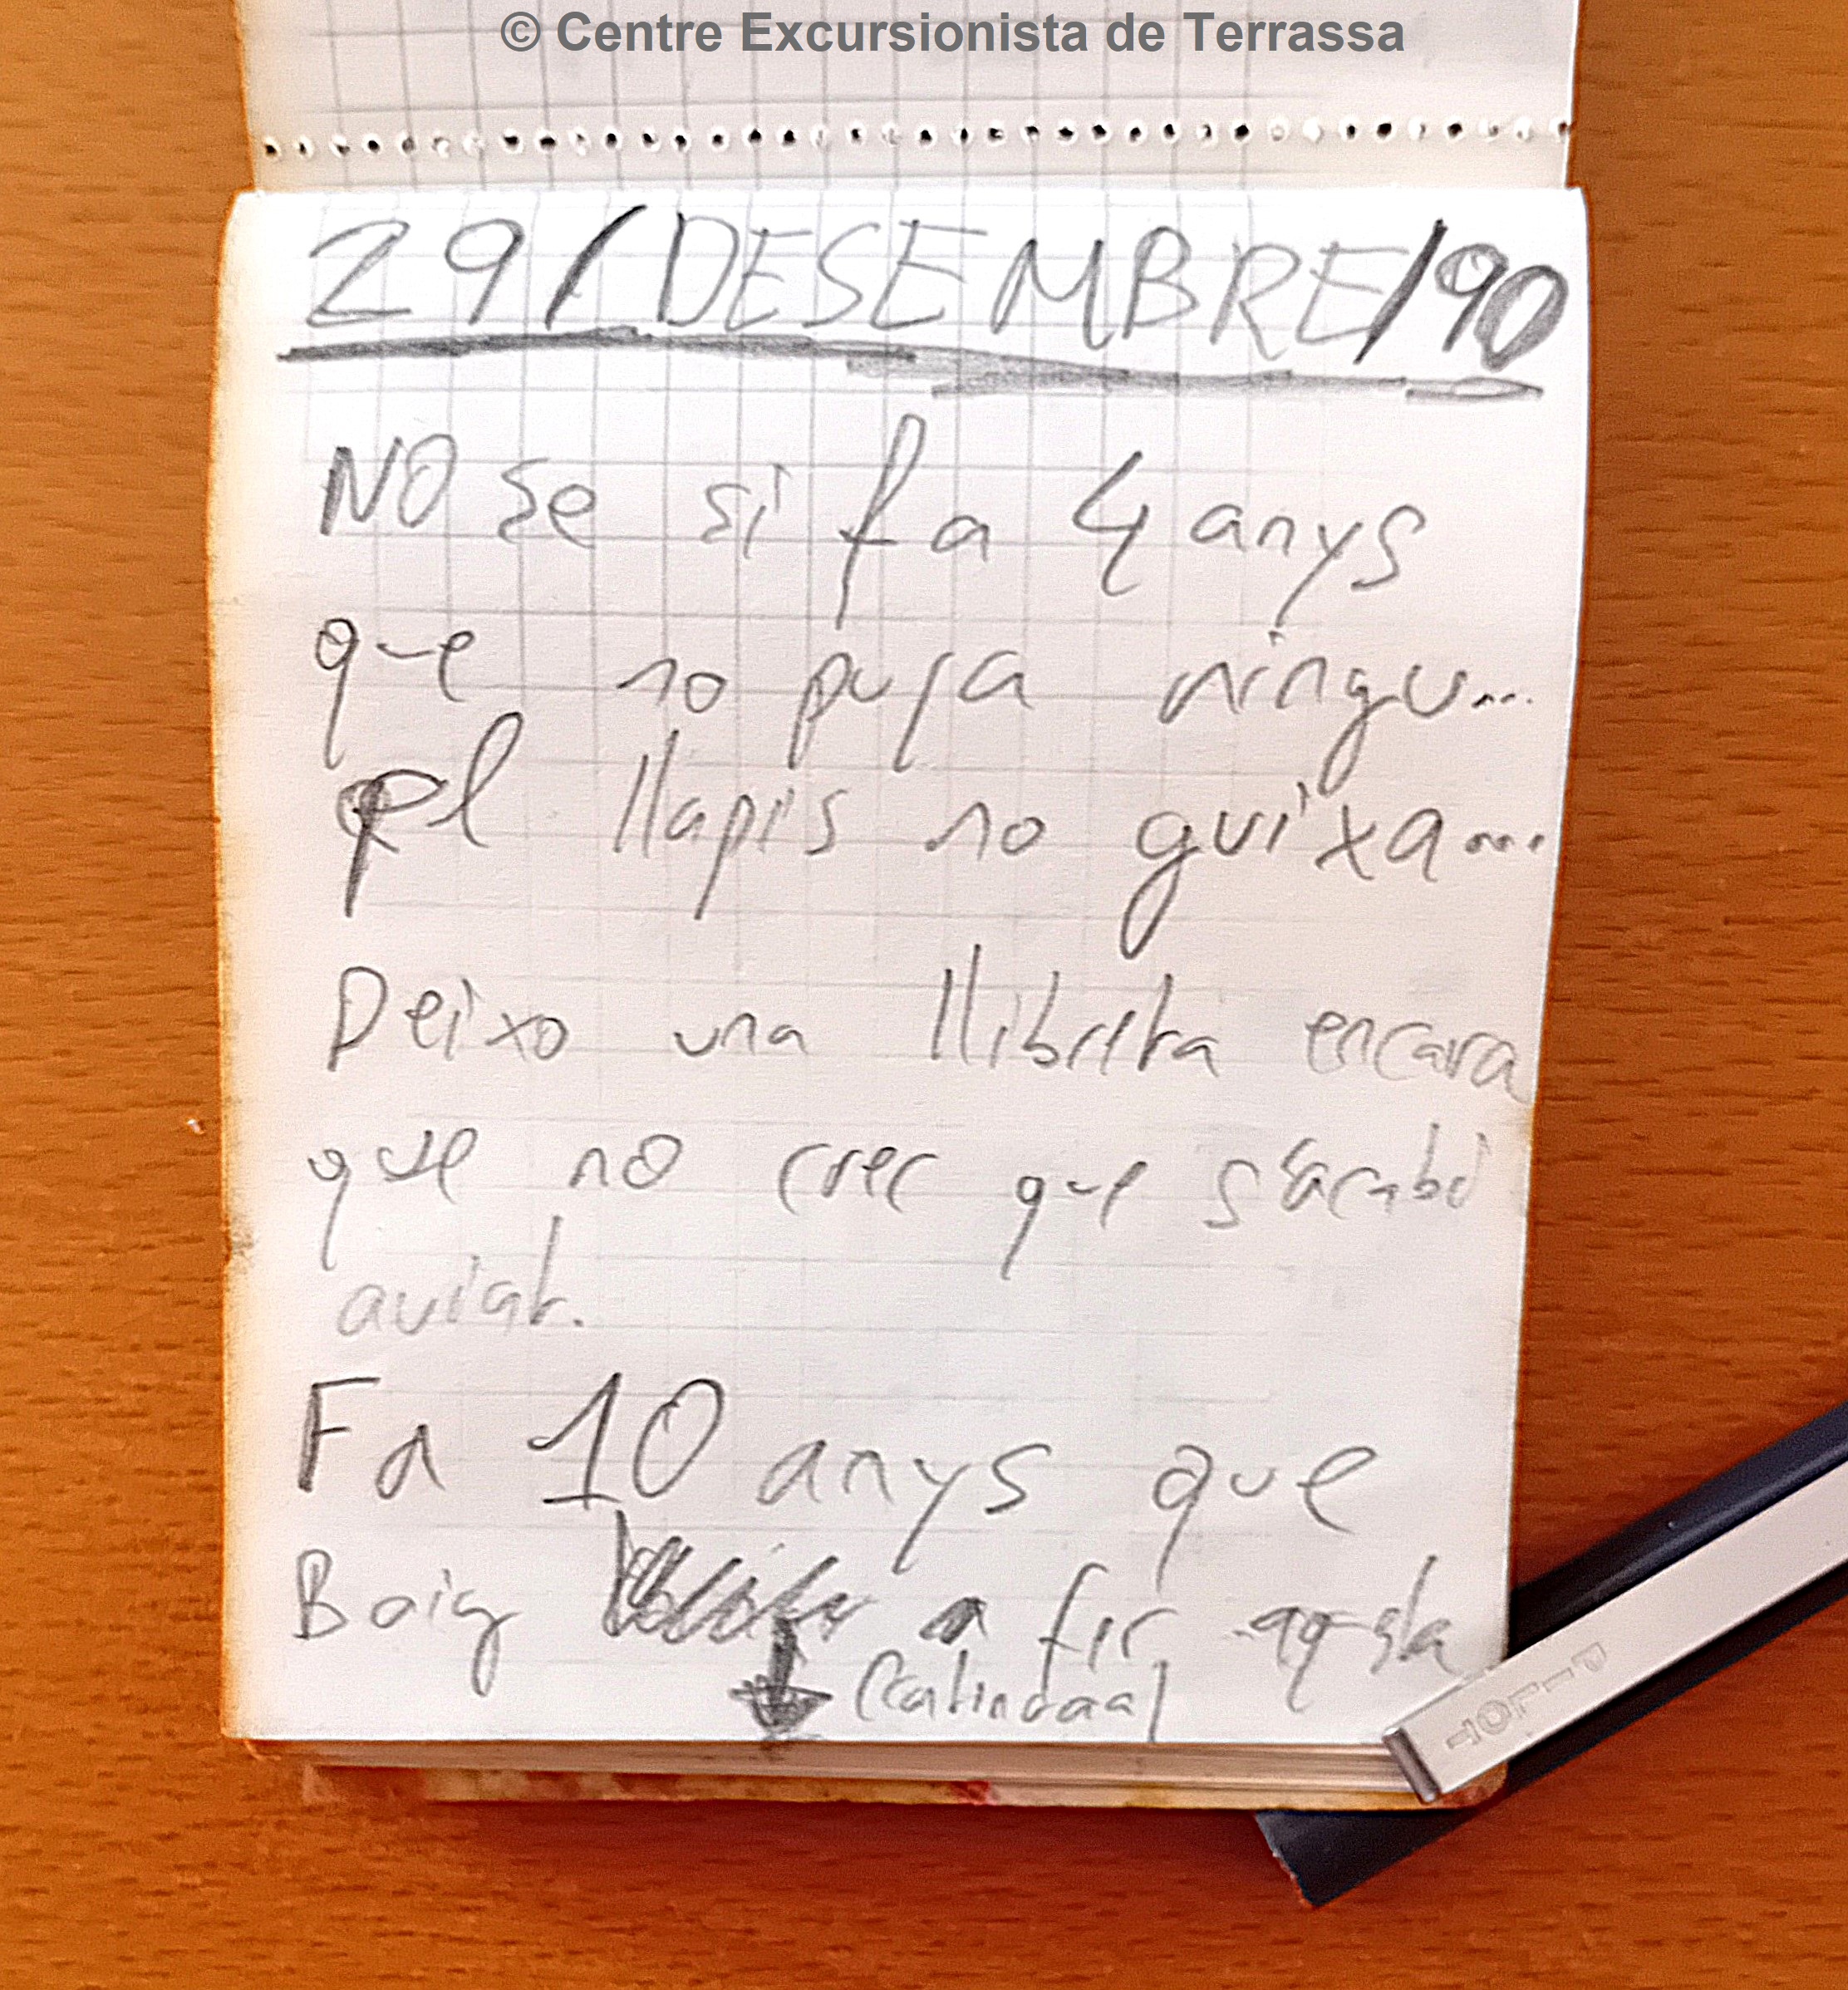 © Centre Excursionista de Terrassa
29/DESEMBRE/90
NO se si fa 4 anys
que no puja ningu...
el llapis no guixa...
Deixo una llibreta encara
que no crec que s'acabi
aviat.
Fa 10 anys que
Boig a fer
PILOT